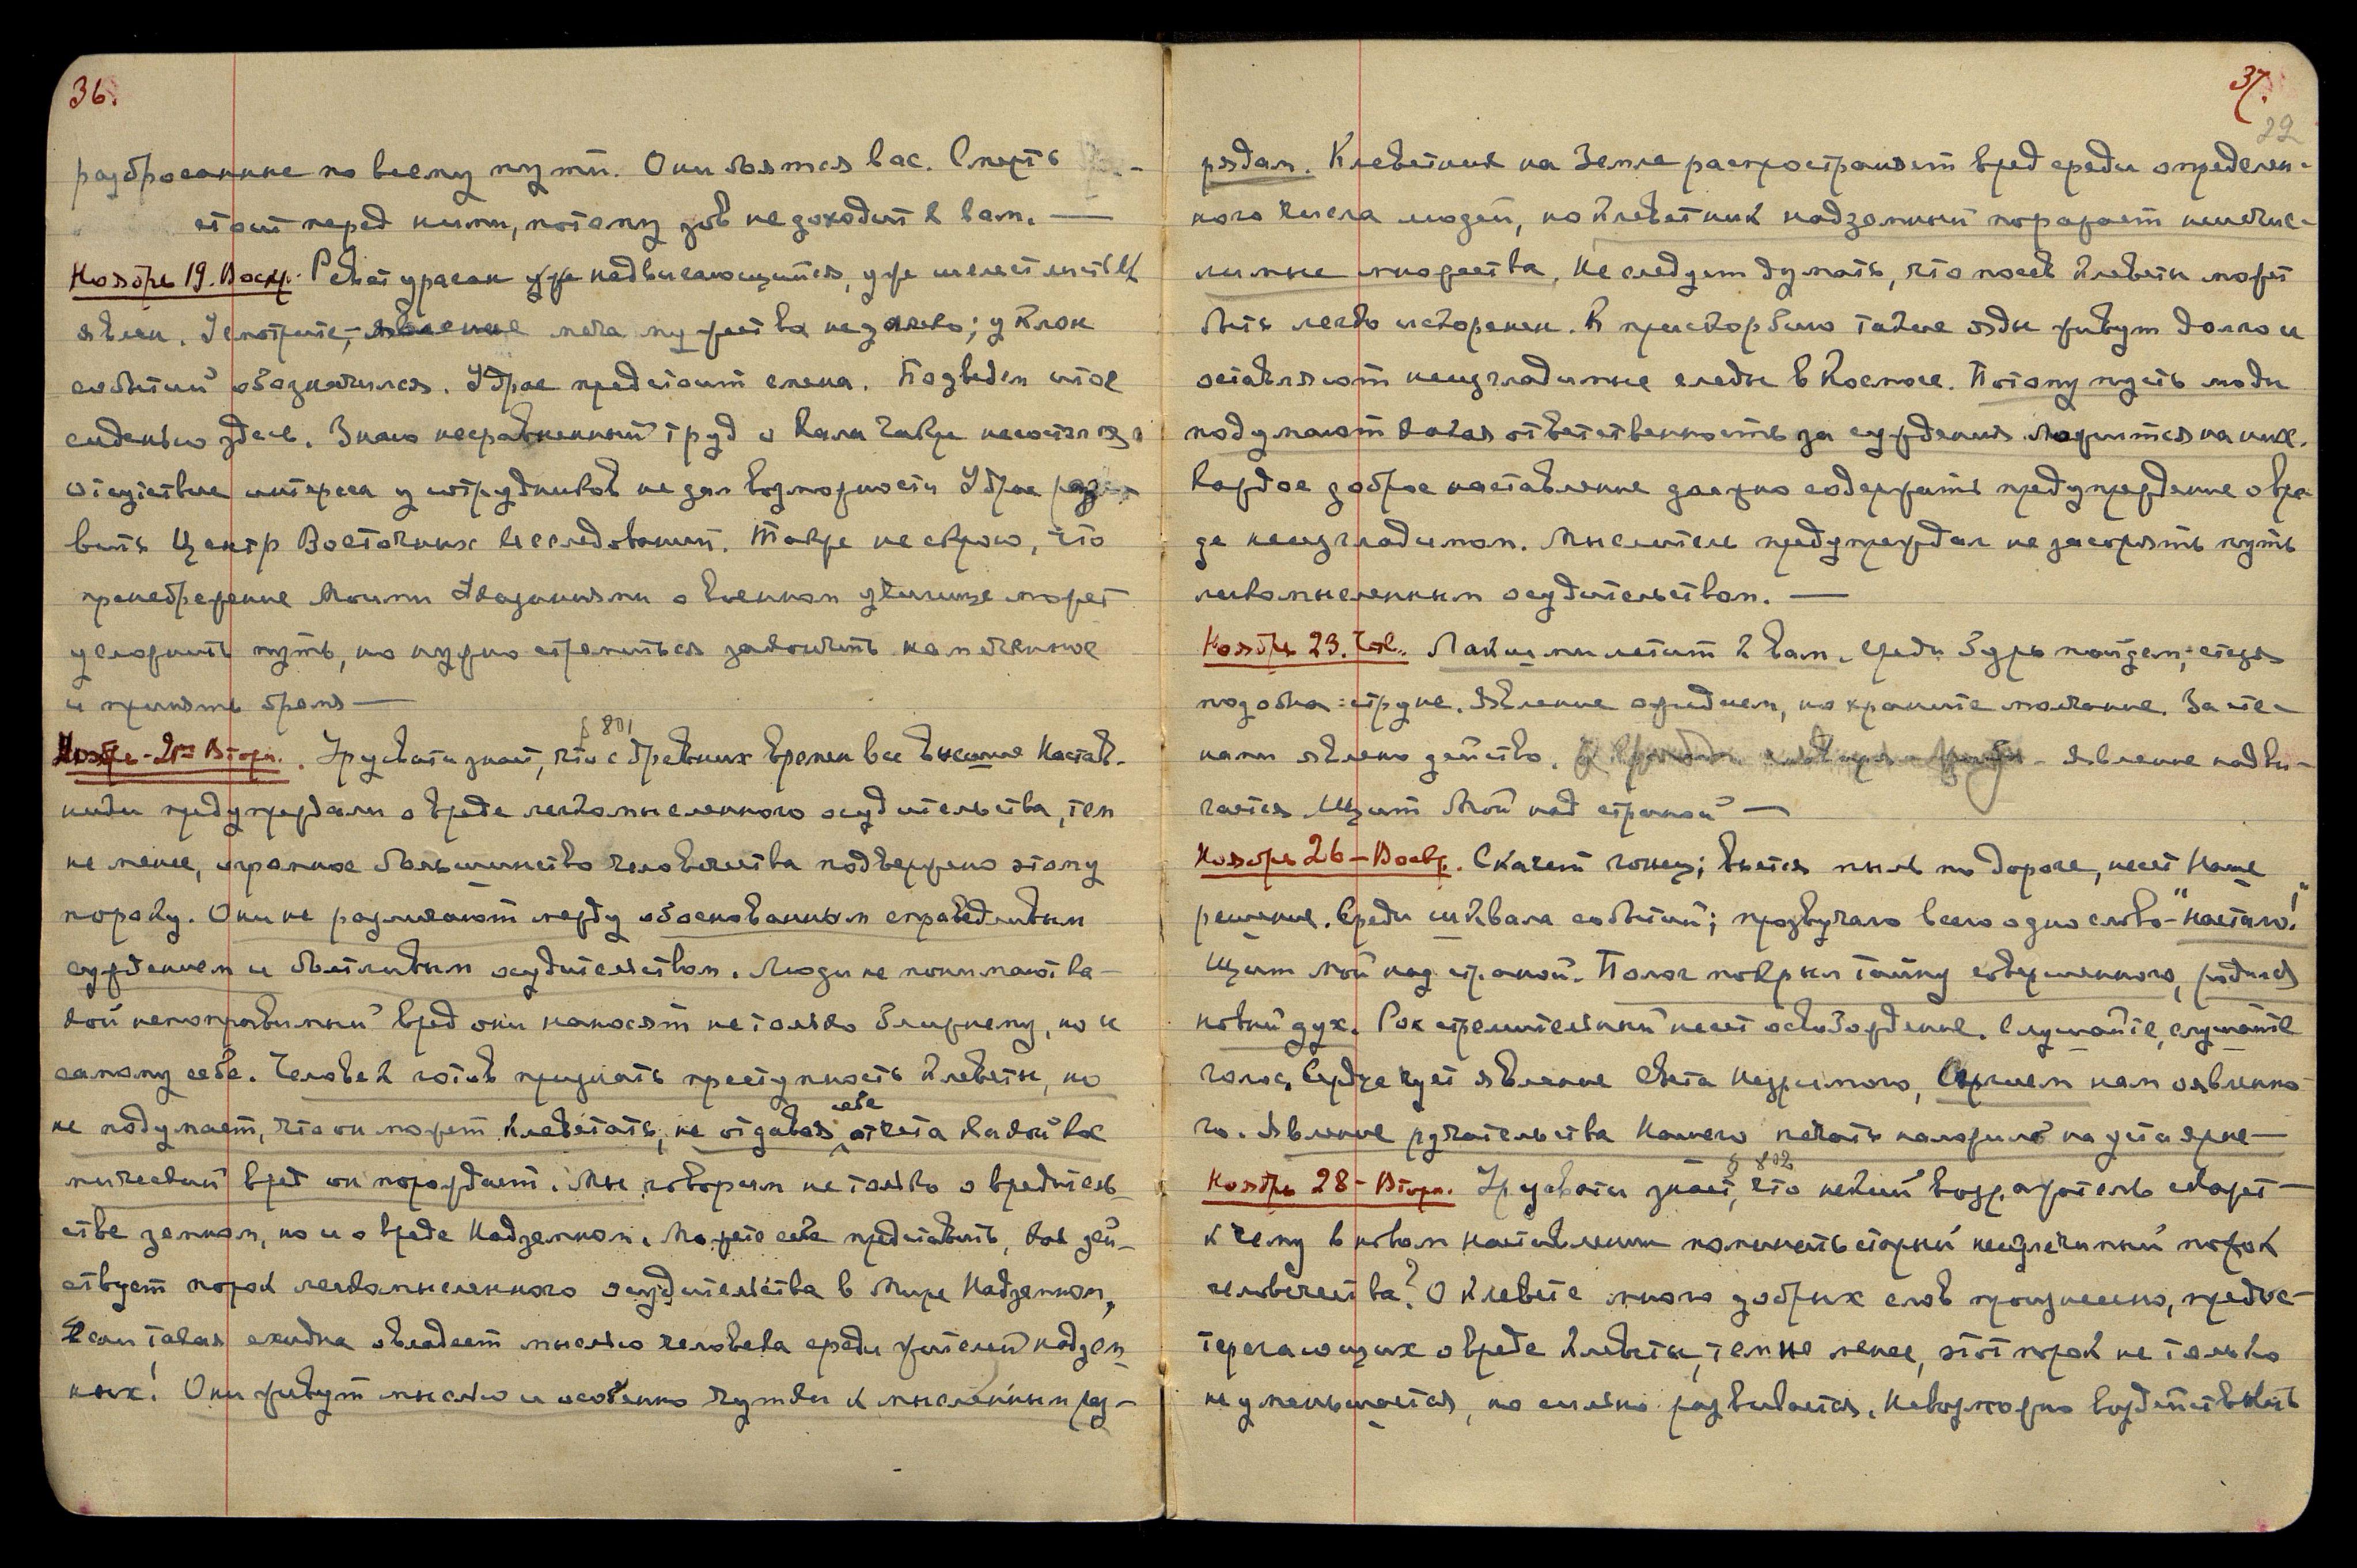 36.
разбросанные по всему пути. Они боятся вас. Смерть
стоит перед ними, потому зов не доходит к вам. —
Ноябрь 19. Воскр. Ревёт ураган уже надвигающийся, уже шелест листьев
явлен. Смотрите, — явление меча мужества недалеко; уклон
событий обозначился. Удрае предстоит смена. Подведен итог
сиденью здесь. Знаю несравненный труд и
отсутствие интереса у сотрудников не дал возможности Удрае разви-
вить Центр Восточных Исследований. Также не скрою, что
пренебрежение Моими Указаниями о военном училище может
усложнить путь, но нужно стремиться закончить намеченное
и принять бремя —
§ 801
Ноябрь – 21го Вторн. Урусвати знает, что с древних времен все высшие Настав-
ники предупреждали о вреде легкомысленного осудительства, тем
не менее, огромное большинство человечества подвержено этому
пороку. Они не различают между обоснованным справедливым
суждением и болтливым осудительством. Люди не понимают ка-
кой непоправимый вред они наносят не только ближнему, но и
самому себе. Человек готов признать преступность клеветы, но
не подумает, что он может клеветать, не отдавая себе отчета какой кос-
мический вред он порождает. Мы говорим не только о вредитель-
стве земном, но и о вреде Надземном. Можете себе представить, как дей-
ствует порок легкомысленного осудительства в Мире Надземном,
Если такая ехидна овладеет мыслью человека среди жителей надзем-
ных! Они живут мыслью и особенно чутки к мысленным раз-
37.
22
рядам. Клеветник на Земле распространяет вред среди определен-
ного числа людей, но клеветник надземный поражает неисчис-
лимые множества. Не следует думать, что посев клеветы может
быть легко искоренен. К прискорбию такие яды живут долго и
оставляют неизгладимые следы в Космосе. Потому пусть люди
подумают какая ответственность за суждения ложится на них.
Каждое доброе наставление должно содержать предупреждение о вре-
де неизгладимом. Мыслитель предупреждал не засорять путь
легкомысленным осудительством. —
Ноябрь 23. Четв. Лакшми летит к вам. Среди бурь пойдем; стезя
подобна струне. Явление ожидаем, но храните молчание. За сте-
нами явлено действо. Явление надви-
гается Щит Мой над страной —
Ноябрь 26 – Воскр. Скачет гонец; вьется пыль по дороге, несет Наше
решение. Среди шквала событий; прозвучало всего одно слово – "настало!"
Щит Мой над страной. Полог покрыл тайну совершенного, родился
новый дух. Рок стремительный несет освобождение. Слушайте, слушайте
голос, Сердце чует явление Света Незримого,
го. Явление ручательства Нашего печать наложило на уста
§ 802
Ноябрь 28 – Вторн. Урусвати знает, что некий возражатель скажет —
к чему в новом наставлении поминать старый неизлечимый порок
человечества? О клевете много добрых слов произнесено, предос-
терегающих о вреде клеветы, тем не менее, этот порок не только
не уменьшается, но сильно развивается. Невозможно воздействовать